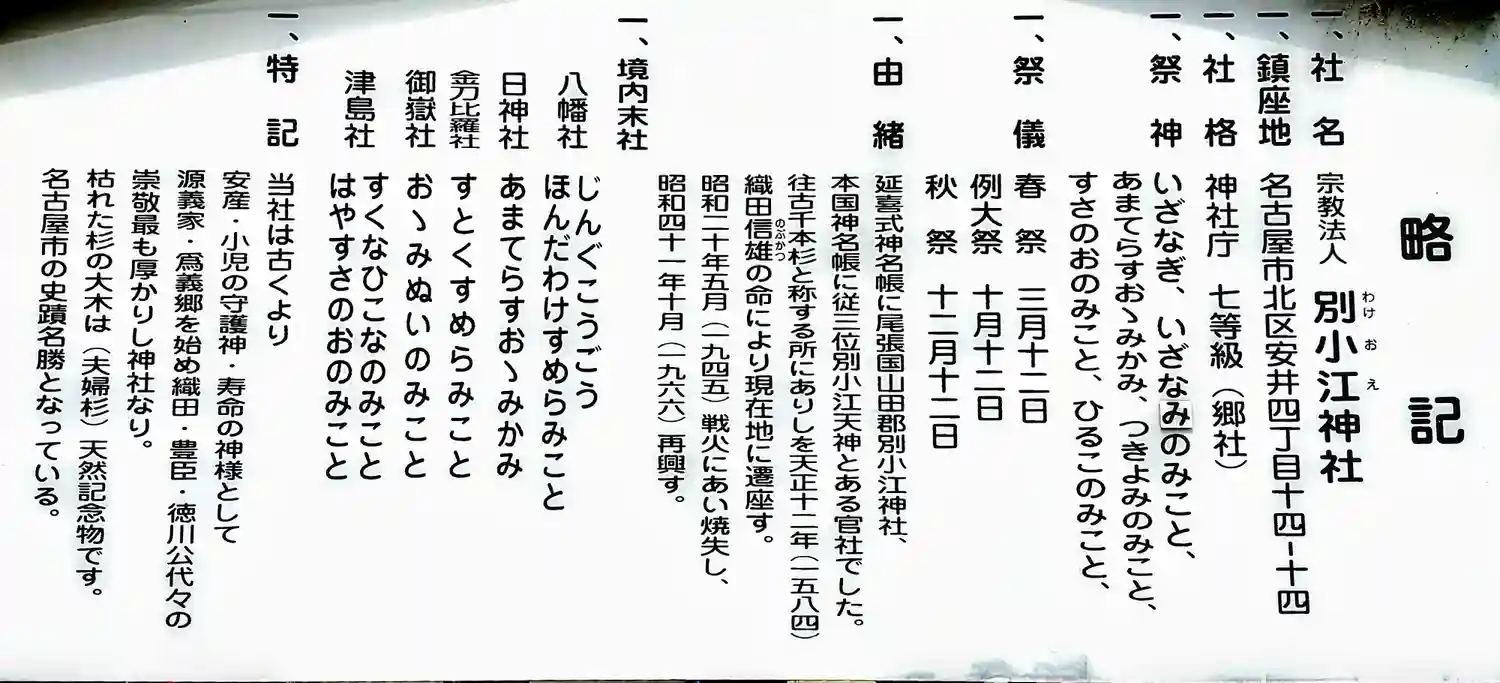 略記
一、社名 宗教法人 別小江神社
わけ お え
一、鎮座地 名古屋市北区安井四丁目十四-十四
一、社格 神社庁 七等級（郷社）
一、祭神 いざなぎ、いざなみのみこと、
あまてらすおゝみかみ、つきよみのみこと、
すさのおのみこと、ひるこのみこと、
一、祭儀 春祭 三月十二日
例大祭 十月十二日
秋祭 十二月十二日
一、由緒 延喜式神名帳に尾張国山田郡別小江神社、
本国神名帳に従三位別小江天神とある官社でした。
往古千本杉と称する所にありしを天正十二年（一五八四）
織田信雄の命により現在地に遷座す。
のぶかつ
昭和二十年五月（一九四五）戦火にあい焼失し、
昭和四十一年十月（一九六六）再興す。
一、境内末社
八幡社 じんぐこうごう
ほんだわけすめらみこと
日神社 あまてらすおゝみかみ
金刀比羅社 すとくすめらみこと
御嶽社 おゝみぬいのみこと
津島社 すくなひこなのみこと
はやすさのおのみこと
一、特記 当社は古くより
安産・小児の守護神・寿命の神様として
源義家・爲義郷を始め織田・豊臣・徳川公代々の
崇敬最も厚かりし神社なり。
枯れた杉の大木は（夫婦杉）天然記念物です。
名古屋市の史蹟名勝となっている。